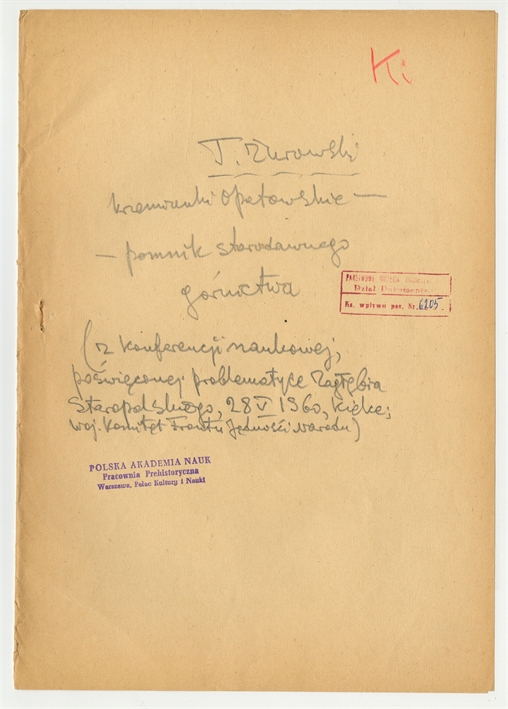 Ki
T. Żurowski
Krzemionki Opatowskie —
— pomnik starodawnego
górnictwa
Dział
Ks. wpływu poz. Nr. 6205.
(z konferencji naukowej,
poświęconej problematyce Zagłębia
Staropolskiego, 28 V 1960, Kielce;
Woj. Komitet Frontu Jedności Narodu)
POLSKA AKADEMIA NAUK
Pracownia Prehistoryczna
Warszawa, Pałac Kultury i Nauki